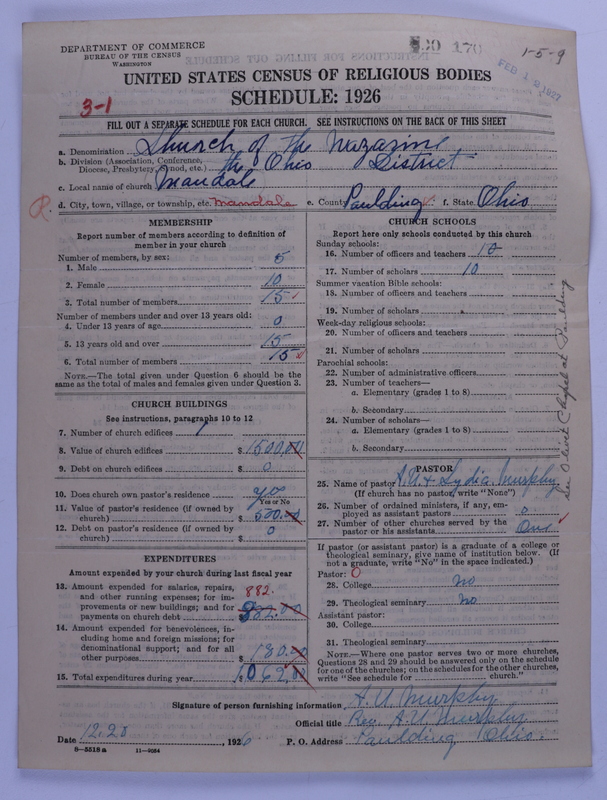 DEPARTMENT OF COMMERCE
BUREAU OF THE CENSUS
WASHINGTON
170
1-5-9
FEB 1 2 1927
UNITED STATES CENSUS OF RELIGIOUS BODIES
3-1
SCHEDULE: 1926
FILL OUT A SEPARATE SCHEDULE FOR EACH CHURCH. SEE INSTRUCTIONS ON THE BACK OF THIS SHEET
a. Denomination Church of the Nazarine
b. Division (Association, Conference, Diocese, Presbytery, Synod, etc.) the Ohio District
c. Local name of church Mandale
R. d. City, town, village, or township, etc. Mandale e. County Paulding f. State Ohio
MEMBERSHIP
Report number of members according to definition of
member in your church
Number of members, by sex:
1. Male 5
2. Female 10
3. Total number of members 15
Number of members under and over 13 years old:
4. Under 13 years of age 0
5. 13 years old and over 15
6. Total number of members 15
NOTE.—The total given under Question 6 should be
same as the total of males and females given under Question 3.
CHURCH BUILDINGS
See instructions, paragraphs 10 to 12
7. Number of church edifices 1
8. Value of church edifices $ 1500.00
9. Debt on church edifices $ 0
10. Does church own pastor's residence yes
Yes or No
11. Value of pastor's residence (if owned by
church) $ 500.00
12. Debt on pastor's residence (if owned by
church) $ 0
EXPENDITURES
Amount expended by your church during last fiscal year
13. Amount expended for salaries, repairs, 882.
and other running expenses; for im-
provements or new buildings; and for
payments on church debt $ 882.00
14. Amount expended for benevolences, in-
cluding home and foreign missions; for
denominational support; and for all
other purposes $ 180.00
15. Total expenditures during year $ 1062.00
CHURCH SCHOOLS
Report here only schools conducted by this church
Sunday schools:
16. Number of officers and teachers 10
17. Number of scholars 10
Summer vacation Bible schools:
18. Number of officers and teachers
19. Number of scholars
Week-day religious schools:
20. Number of officers and teachers
21. Number of scholars
Parochial schools:
22. Number of administrative officers
23. Number of teachers—
a. Elementary (grades 1 to 8)
b. Secondary
24. Number of scholars—
a. Elementary (grades 1 to 8)
b. Secondary
See Olivet Chapel at Paulding
PASTOR
25. Name of pastor A.U. & Lydia Murphy
(If church has no pastor, write "None")
26. Number of ordained ministers, if any, em-
ployed as assistant pastors 0
27. Number of other churches served by the
pastor or his assistants One
If pastor (or assistant pastor) is a graduate of a college or
theological seminary, give name of institution below. (If
not a graduate, write "No" in the space indicated.)
Pastor: 0
28. College No
29. Theological seminary No
Assistant pastor:
30. College
31. Theological seminary
NOTE.—Where one pastor serves two or more churches,
Questions 28 and 29 should be answered only on the schedule
for one of the churches; on the schedules for the other churches,
write "See schedule for church."
Signature of person furnishing information A. U. Murphy
Official title Rev. A U Murphy
Date 12.28, 1926 P. O. Address Paulding Ohio.
8—5518 a 11—9084